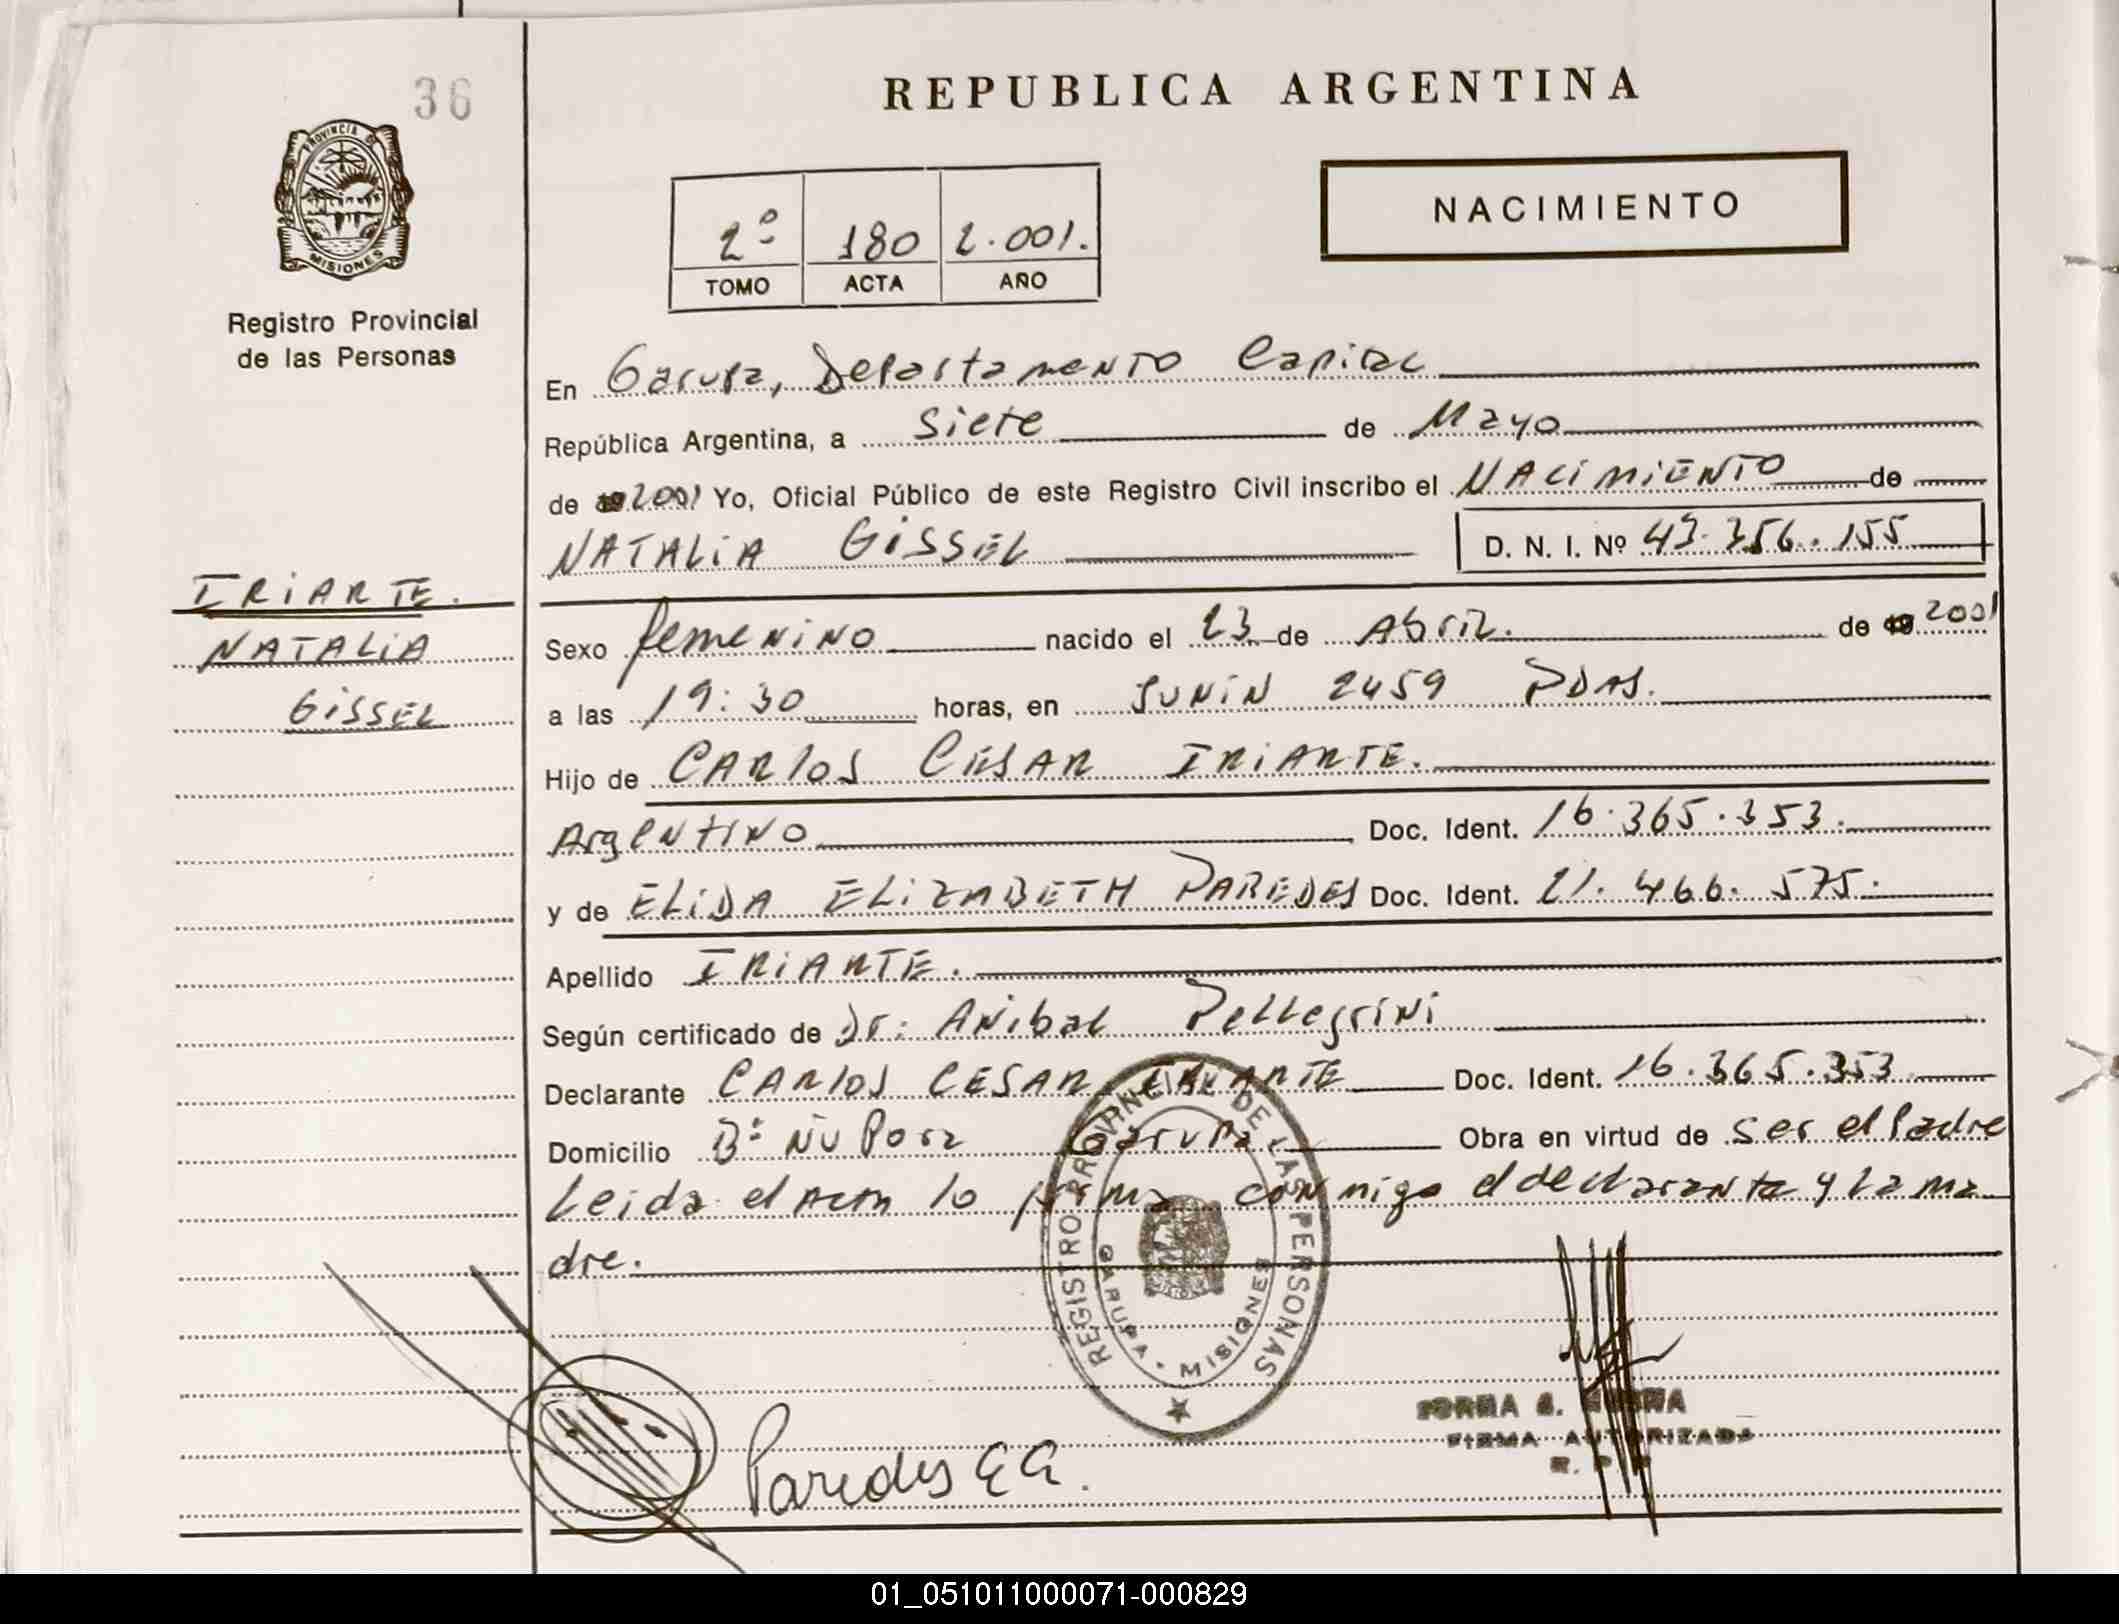 36
REPUBLICA ARGENTINA
PROVINCIA DE
MISIONES
Registro Provincial
de las Personas
NACIMIENTO
2º 180 2.001.
TOMO ACTA AÑO
En Garupa, Departamento Capital
República Argentina, a Siete de Mayo
de 19 2001 Yo, Oficial Público de este Registro Civil inscribo el NACIMIENTO de
NATALIA GISSEL D. N. I. Nº 43.356.155
IRIARTE.
NATALIA
GISSEL
Sexo femenino nacido el 23 de Abril. de 19 2001
a las 19:30 horas, en JUNIN 2459 PDAS.
Hijo de CARLOS CESAR IRIARTE.
Argentino Doc. Ident. 16.365.353.
y de ELIDA ELIZABETH PAREDES Doc. Ident. 21.466.575.
Apellido IRIARTE.
Según certificado de Dr: Anibal Pellegrini
Declarante CARLOS CESAR IRIARTE Doc. Ident. 16.365.353
Domicilio Bº ÑU PORA Garupa Obra en virtud de ser el Padre
Leida el Acta lo firma conmigo el declarante y la ma
dre.
REGISTRO PROVINCIAL DE LAS PERSONAS
GARUPA • MISIONES
FIRMA AUTORIZADA
R. P. P.
Paredes E E.
01_051011000071-000829